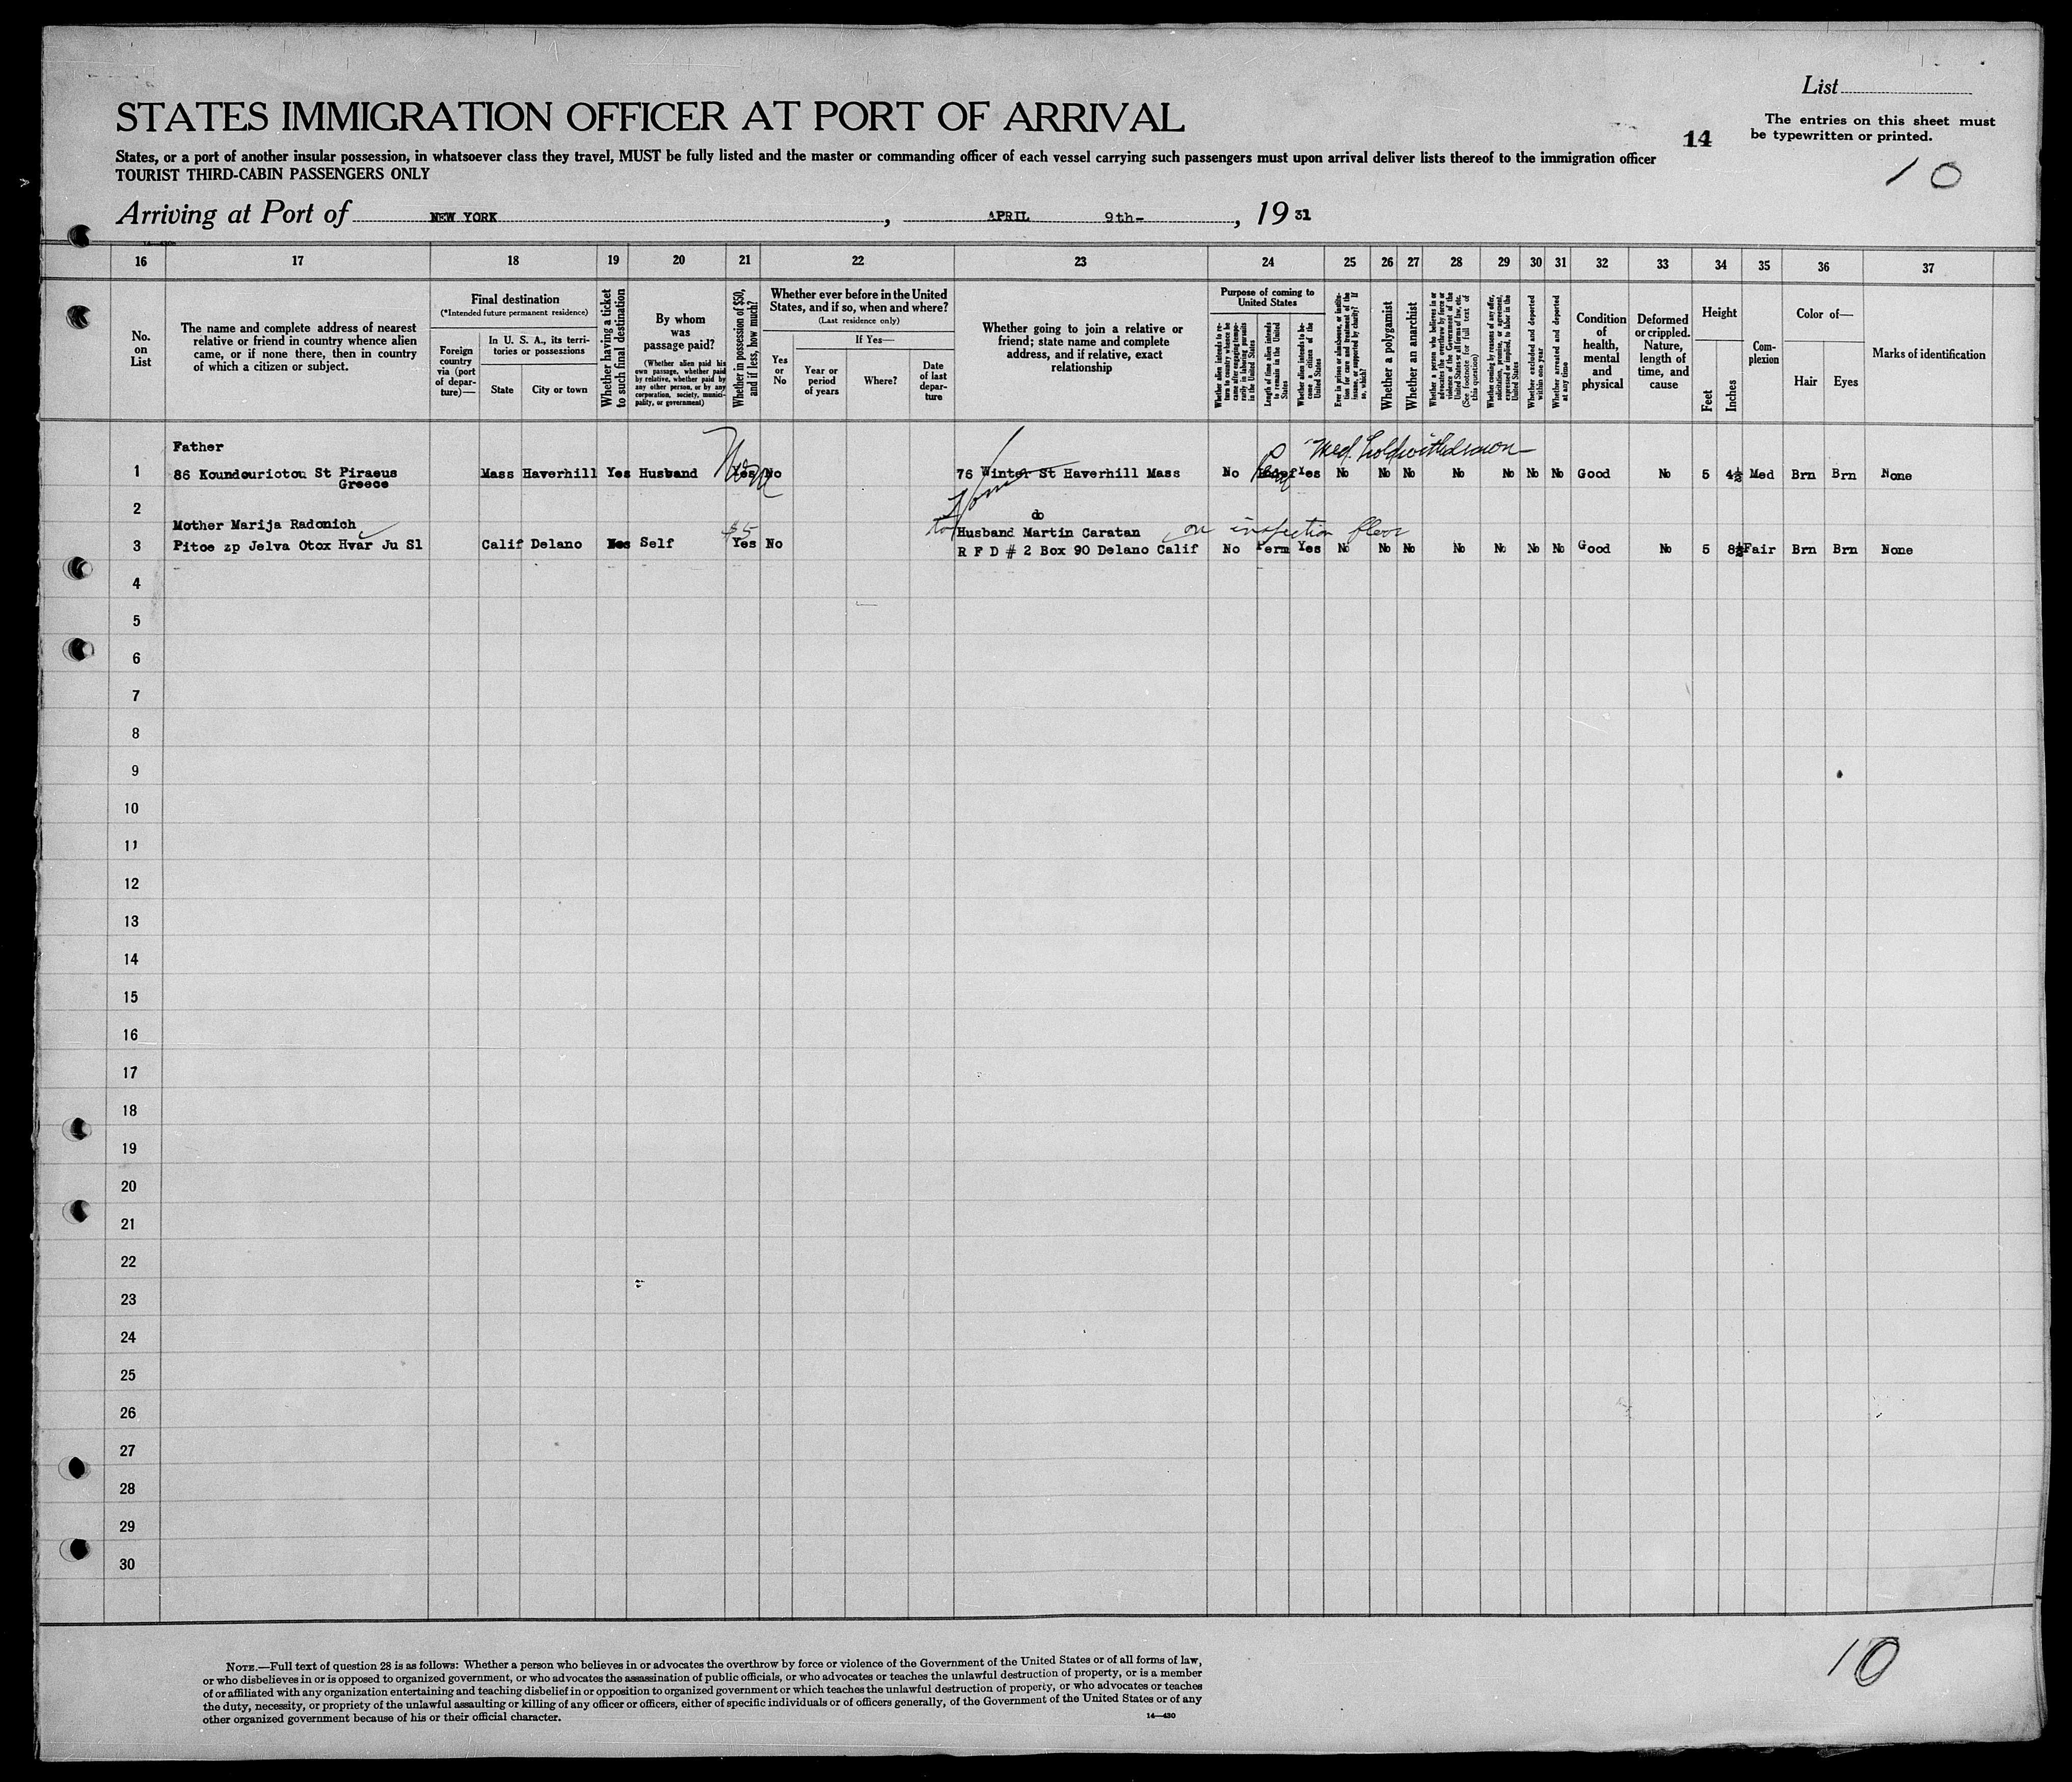 List
The entries on this sheet must
be typewritten or printed.
14
10
STATES IMMIGRATION OFFICER AT PORT OF ARRIVAL
States, or a port of another insular possession, in whatsoever class they travel, MUST be fully listed and the master or commanding officer of each vessel carrying such passengers must upon arrival deliver lists thereof to the immigration officer
TOURIST THIRD-CABIN PASSENGERS ONLY
Arriving at Port of NEW YORK, APRIL 9th-, 1931
16 17 18 19 20 21 22 23 24 25 26 27 28 29 30 31 32 33 34 35 36 37
No.
on
List
The name and complete address of nearest
relative or friend in country whence alien
came, or if none there, then in country
of which a citizen or subject.
Final destination
(*Intended future permanent residence)
Foreign
country
via (port
of depar-
ture)—
In U. S. A., its terri-
tories or possessions
State City or town
Whether having a ticket
to such final destination
By whom
was
passage paid?
(Whether alien paid his
own passage, whether paid
by relative, whether paid by
any other person, or by any
corporation, society, munici-
pality, or government)
Whether in possession of $50,
and if less, how much?
Whether ever before in the United
States, and if so, when and where?
(Last residence only)
Yes
or
No
If Yes—
Year or
period
of years
Where?
Date
of last
depar-
ture
Whether going to join a relative or
friend; state name and complete
address, and if relative, exact
relationship
Purpose of coming to
United States
Whether alien intends to re-
turn to country whence he
came after engaging tempo-
rarily in laboring pursuits
in the United States
Length of time alien intends
to remain in the United
States
Whether alien intends to be-
come a citizen of the
United States
Ever in prison or almshouse, or institu-
tion for care and treatment of the
insane, or supported by charity? If
so, which?
Whether a polygamist
Whether an anarchist
Whether a person who believes in or
advocates the overthrow by force or
violence of the Government of the
United States or all forms of law, etc.
(See footnote for full text of
this question)
Whether coming by reasons of any offer,
solicitation, promise, or agreement,
expressed or implied, to labor in the
United States
Whether excluded and deported
within one year
Whether arrested and deported
at any time
Condition
of
health,
mental
and
physical
Deformed
or crippled.
Nature,
length of
time, and
cause
Height
Feet Inches
Com-
plexion
Color of—
Hair Eyes
Marks of identification
Father
Med. hold withdrawn
1 86 Koundouriotou St Piraeus Mass Haverhill Yes Husband Yes No 76 Winter St Haverhill Mass No Yes No No No No No No No Good No 5 4½ Med Brn Brn None
Greece
2 do
Mother Marija Radonich $5 to Husband Martin Caratan on inspection floor
3 Pitoe zp Jelva Otox Hvar Ju Sl Calif Delano Self Yes No R F D # 2 Box 90 Delano Calif No Perm Yes No No No No No No No Good No 5 8½ Fair Brn Brn None
4
5
6
7
8
9
10
11
12
13
14
15
16
17
18
19
20
21
22
23
24
25
26
27
28
29
30
NOTE.—Full text of question 28 is as follows: Whether a person who believes in or advocates the overthrow by force or violence of the Government of the United States or of all forms of law,
or who disbelieves in or is opposed to organized government, or who advocates the assassination of public officials, or who advocates or teaches the unlawful destruction of property, or is a member
of or affiliated with any organization entertaining and teaching disbelief in or opposition to organized government or which teaches the unlawful destruction of property, or who advocates or teaches
the duty, necessity, or propriety of the unlawful assaulting or killing of any officer or officers, either of specific individuals or of officers generally, of the Government of the United States or of any
other organized government because of his or their official character.
14—430
10